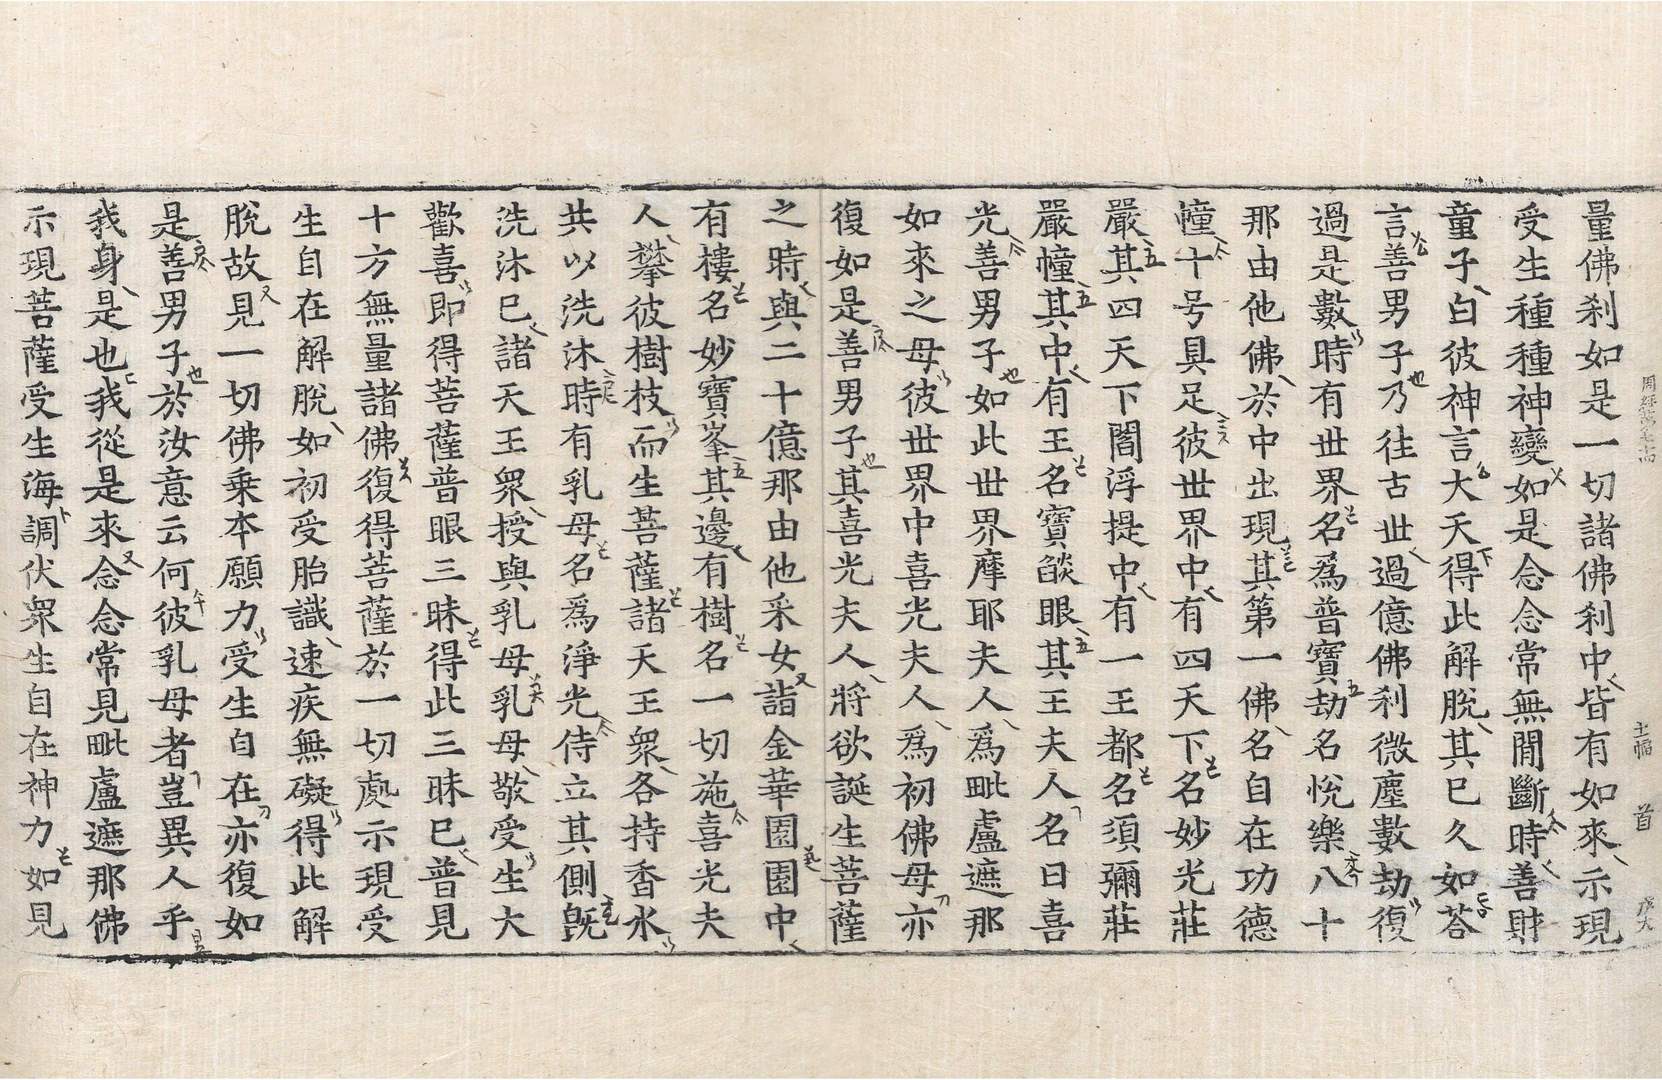 量佛刹如是一切諸佛刹中皆有如來示現
受生種種神變如是念念常無間斷時善財
童子白彼神言大天得此解脫其已久如荅
言善男子乃往古世過億佛刹微塵數劫復
過是數時有世界名爲普寶劫名悅樂八十
那由他佛於中出現其第一佛名自在功德
幢十号具足彼世界中有四天下名妙光莊
嚴其四天下閻浮提中有一王都名須彌莊
嚴幢其中有王名寶燄眼其王夫人名曰喜
光善男子如此世界摩耶夫人爲毗盧遮那
如來之母彼世界中喜光夫人爲初佛母亦
復如是善男子其喜光夫人將欲誕生菩薩
之時與二十億那由他采女詣金華園園中
有樓名妙寶峯其邊有樹名一切施喜光夫
人攀彼樹枝而生菩薩諸天王衆各持香水
共以洗沐時有乳母名爲淨光侍立其側旣
洗沐已諸天王衆授與乳母乳母敬受生大
歡喜即得菩薩普眼三昧得此三昧已普見
十方無量諸佛復得菩薩於一切處示現受
生自在解脫如初受胎識速疾無礙得此解
脫故見一切佛乘本願力受生自在亦復如
是善男子於汝意云何彼乳母者豈異人乎
我身是也我從是來念念常見毗盧遮那佛
示現菩薩受生海調伏衆生自在神力如見